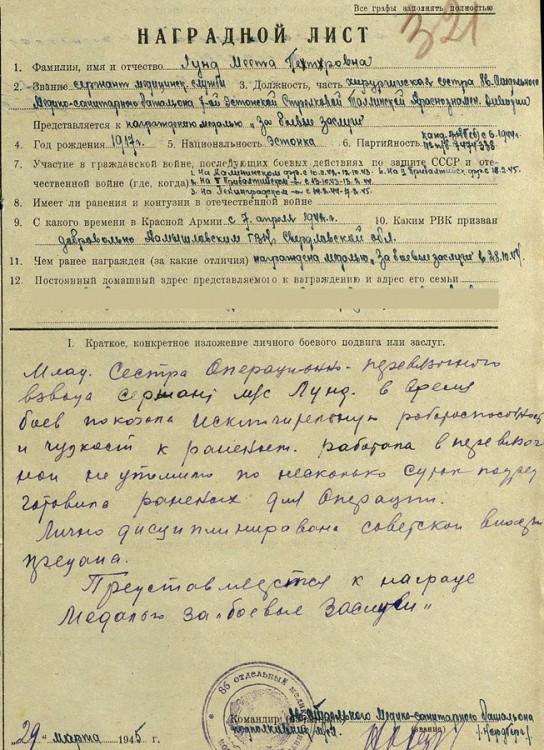 Все графы заполнять полностью
321
НАГРАДНОЙ ЛИСТ
1. Фамилия, имя и отчество Лунд Меета Петровна
2. Звание сержант медицинск. службы 3. Должность, часть хирургическая сестра 86 Отдельного
Медико-санитарного батальона 7-ой Эстонской Стрелковой Таллинской Краснознамен. дивизии
Представляется к награждению медалью „За боевые заслуги“
4. Год рождения 1917г. 5. Национальность эстонка 6. Партийность канд. ВКП(б) с
7. Участие в гражданской войне, последующих боевых действиях по защите СССР и оте-
чественной войне (где, когда) 1. на Калининском фр. с 10.11.42-12.10.43. на II Прибалтийск. фр с 18.2.45.
2. на II Прибалтийском
3. на Ленинградском
8. Имеет ли ранения и контузии в отечественной войне
9. С какого времени в Красной Армии с 7. апреля 10. Каким РВК призван
добровольно Камышловским ГВК, Свердловской обл.
11. Чем ранее награжден (за какие отличия) награждена медалью „За боевые заслуги“ 28.10.44.
12. Постоянный домашний адрес представляемого к награждению и адрес его семьи
I. Краткое, конкретное изложение личного боевого подвига или заслуг.
Млад. Сестра Операционн-перевязочного
взвода сержант м/с Лунд. в время
боев показала исключительную работоспособность
и чуткость к раненым. работала в перевязоч
ной не утомимо по несколько суток подряд
готовила раненых для Операции.
Лично дисциплинирована советской
предана.
Преуставляется к награде
Медалью за „боевые Заслуги“
86 отдельный
Командир 86 Отдельного Медико-санитарного батальона
подполковник м/с (звание)
„29“ марта 1945 г.